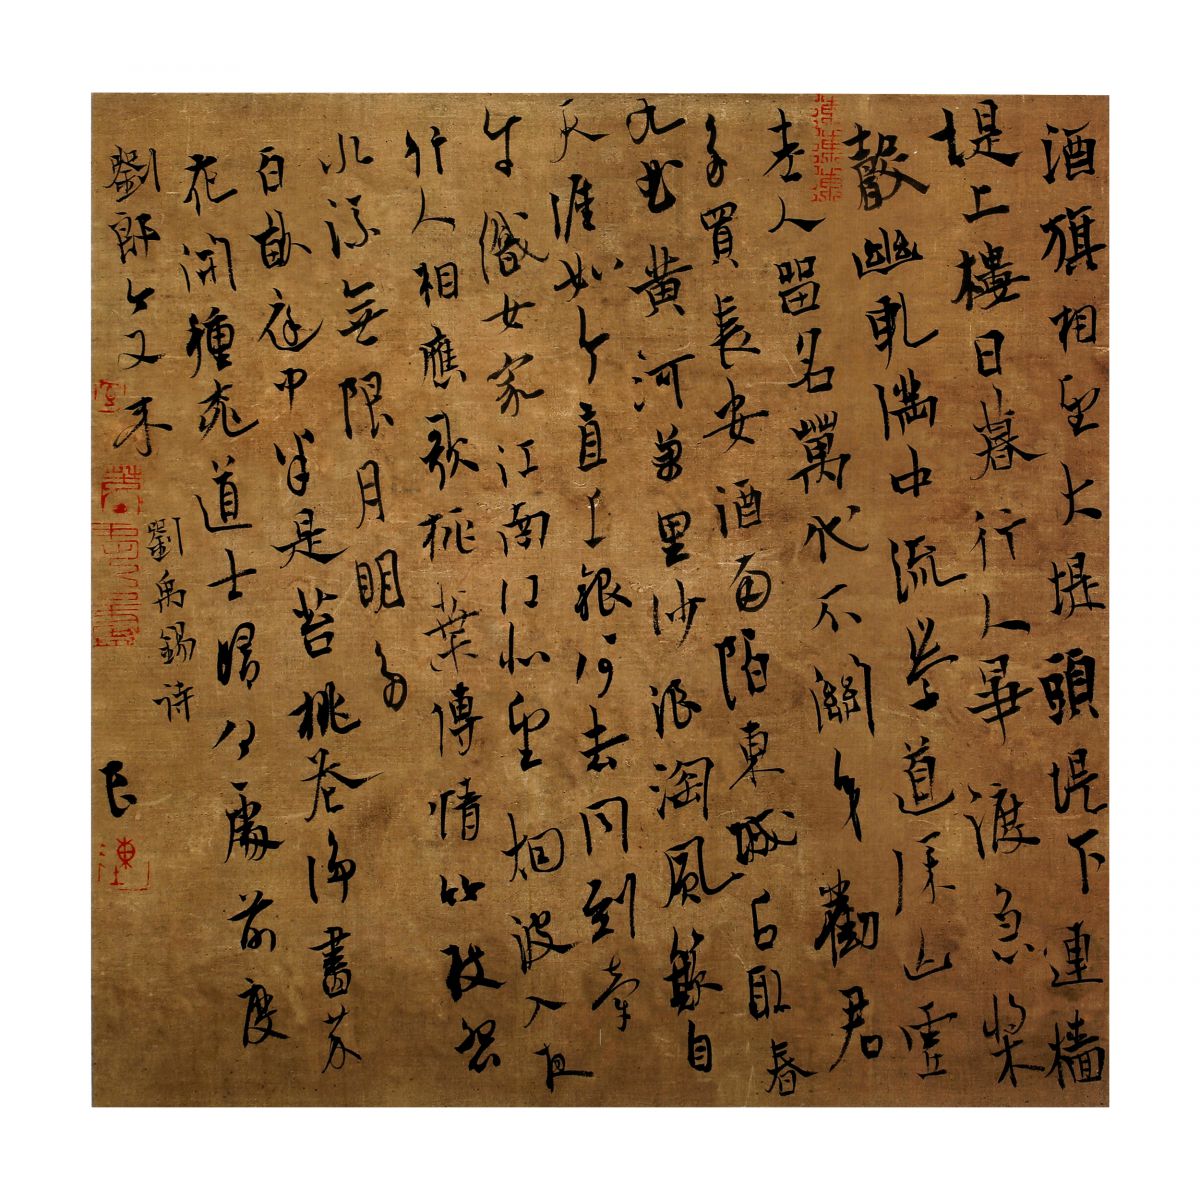 酒旗相望大堤頭堤下連檣
堤上樓日暮行人畢渡急槳
聲幽軋滿中流學道深山虛
老人留名萬代不關身勸君
多買長安酒南陌東城占取春
九曲黃河萬里沙浪淘風簸自
天涯如今直上銀河去同到牽
牛織女家江南江北望烟波入夜
行人相應歌桃葉傳情竹枝怨
水流無限月明多
百畝庭中半是苔桃花淨盡菜
花開種桃道士歸何處前度
劉郎今又來
劉禹錫詩